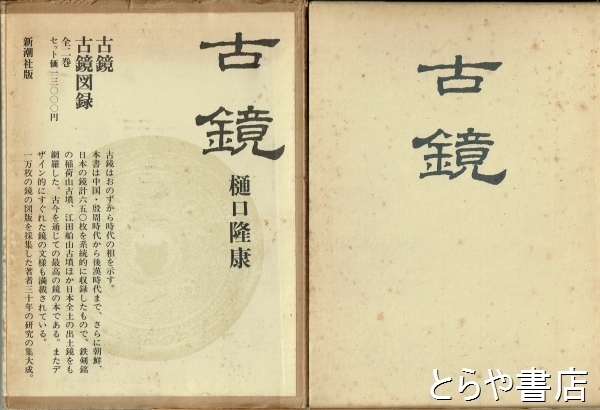 古鏡
樋口隆康
古鏡
古鏡図録
全二巻
セット価一三〇〇〇円
新潮社版
古鏡はおのずから時代の相を示す。
本書は中国・殷周時代から後漢時代まで、さらに朝鮮、
日本の鏡計六五〇枚を系統的に収録したもので、鉄剣銘
の稲荷山古墳、江田船山古墳ほか日本全土の出土鏡をも
網羅した。古今を通じての最高の鏡の本である。またデ
ザイン的にすぐれた鏡の文様も満載されている。
一万枚の鏡の図版を採集した著者三十年の研究の集大成。
古鏡
とらや書店